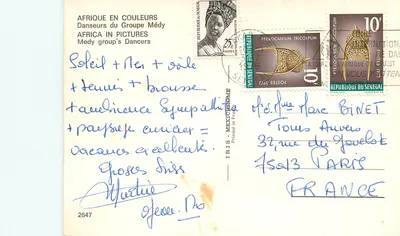 AFRIQUE EN COULEURS
Danseurs du Groupe Médy
AFRICA IN PICTURES
Medy group's Dancers
Soleil + Mer + voile
+ tennis + brousse
+ ambiance sympathique
+ paysage =
vacances excellentes.
Grosses bises
Martine
Jean-Mo
2647
IRIS - MEXICHROME
Printed in
25F
PTEROCANIUM TRICOLPUM
10F
REPUBLIQUE DU SENEGAL
POSTES 1972
10F
REPUBLIQUE DU SENEGAL
M. & Mme Marc BINET
Tours Anvers
32, rue du Javelot
75013 PARIS
FRANCE